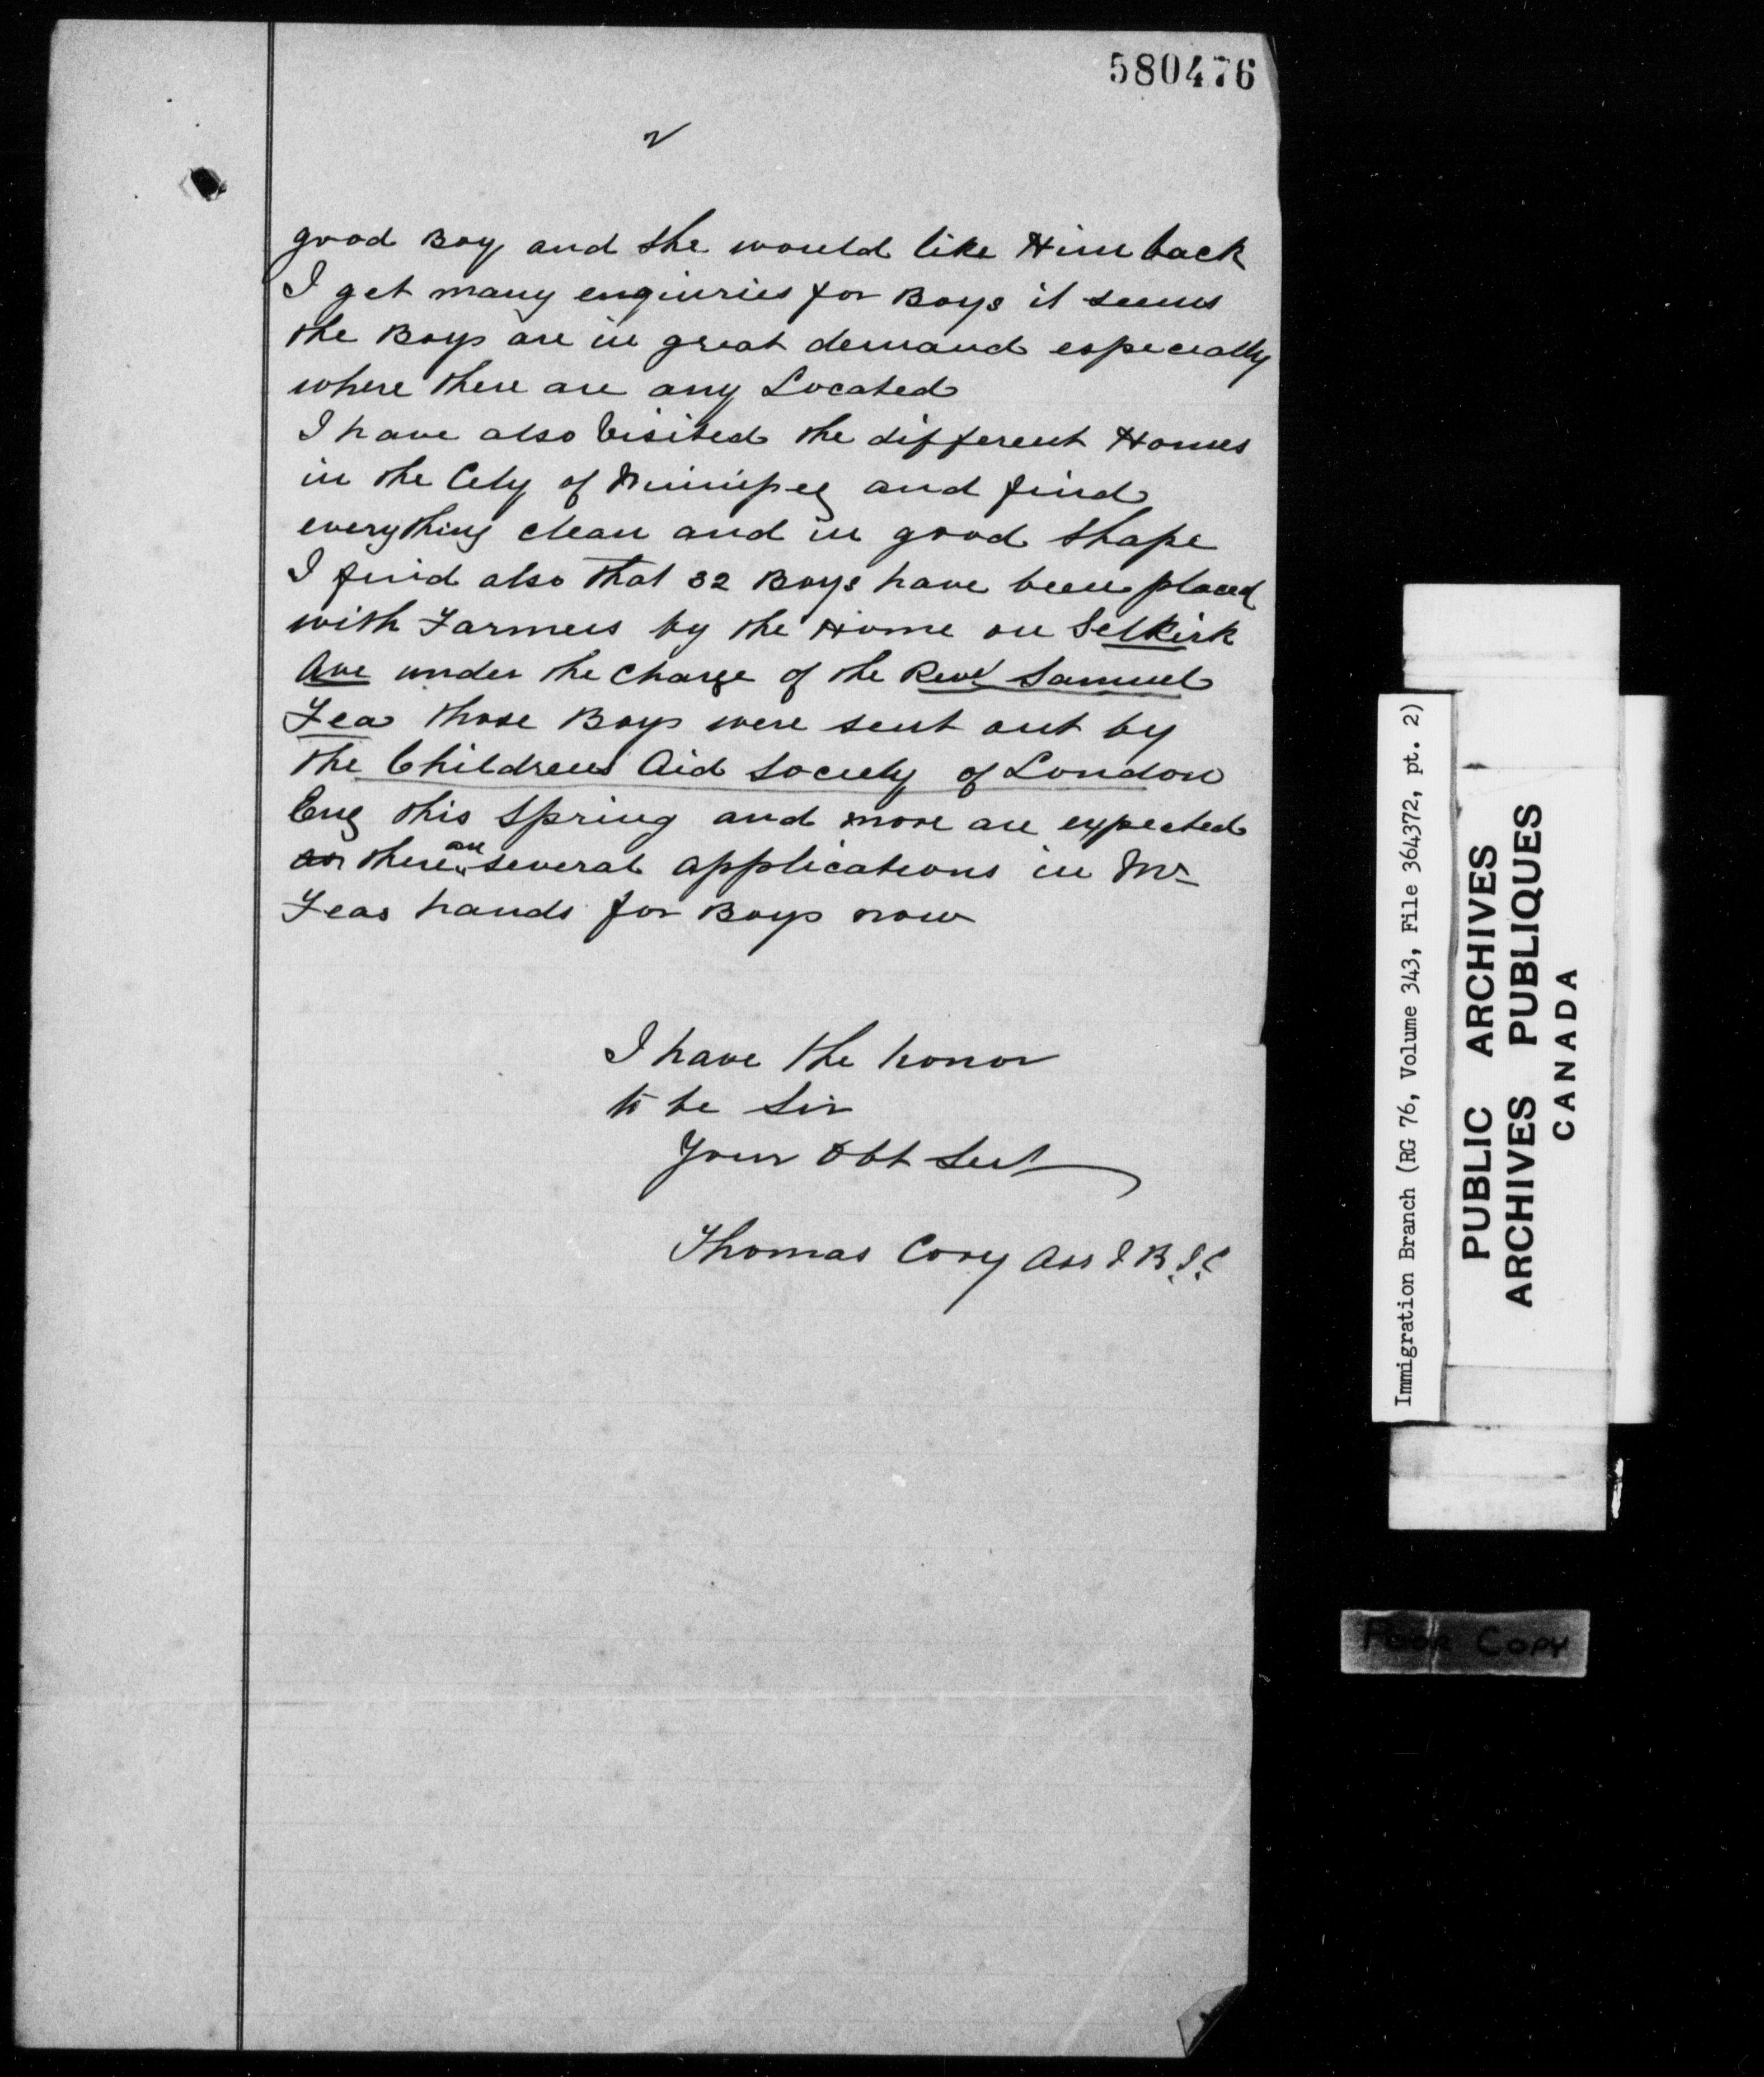 580476
2
good Boy and she would like Him back
I get many enquiries for Boys it seems
the Boys are in great demand especially
where there are any Located
I have also Visited the different Homes
in the City of Winnipeg and find
everything clean and in good shape
I find also that 32 Boys have been placed
with Farmers by the Home on Selkirk
Ave under the charge of the Revd Samuel
Fea those Boys were sent out by
the Childrens Aid Society of London
Eng this Spring and more are expected
as there are several applications in Mr
Feas hands for Boys now
I have the honor
to be Sir
Your Obt Sert
Thomas Cory Ass I B I C
Immigration Branch (RG 76, Volume 343, File 364372, pt. 2)
PUBLIC ARCHIVES
ARCHIVES PUBLIQUES
CANADA
POOR COPY